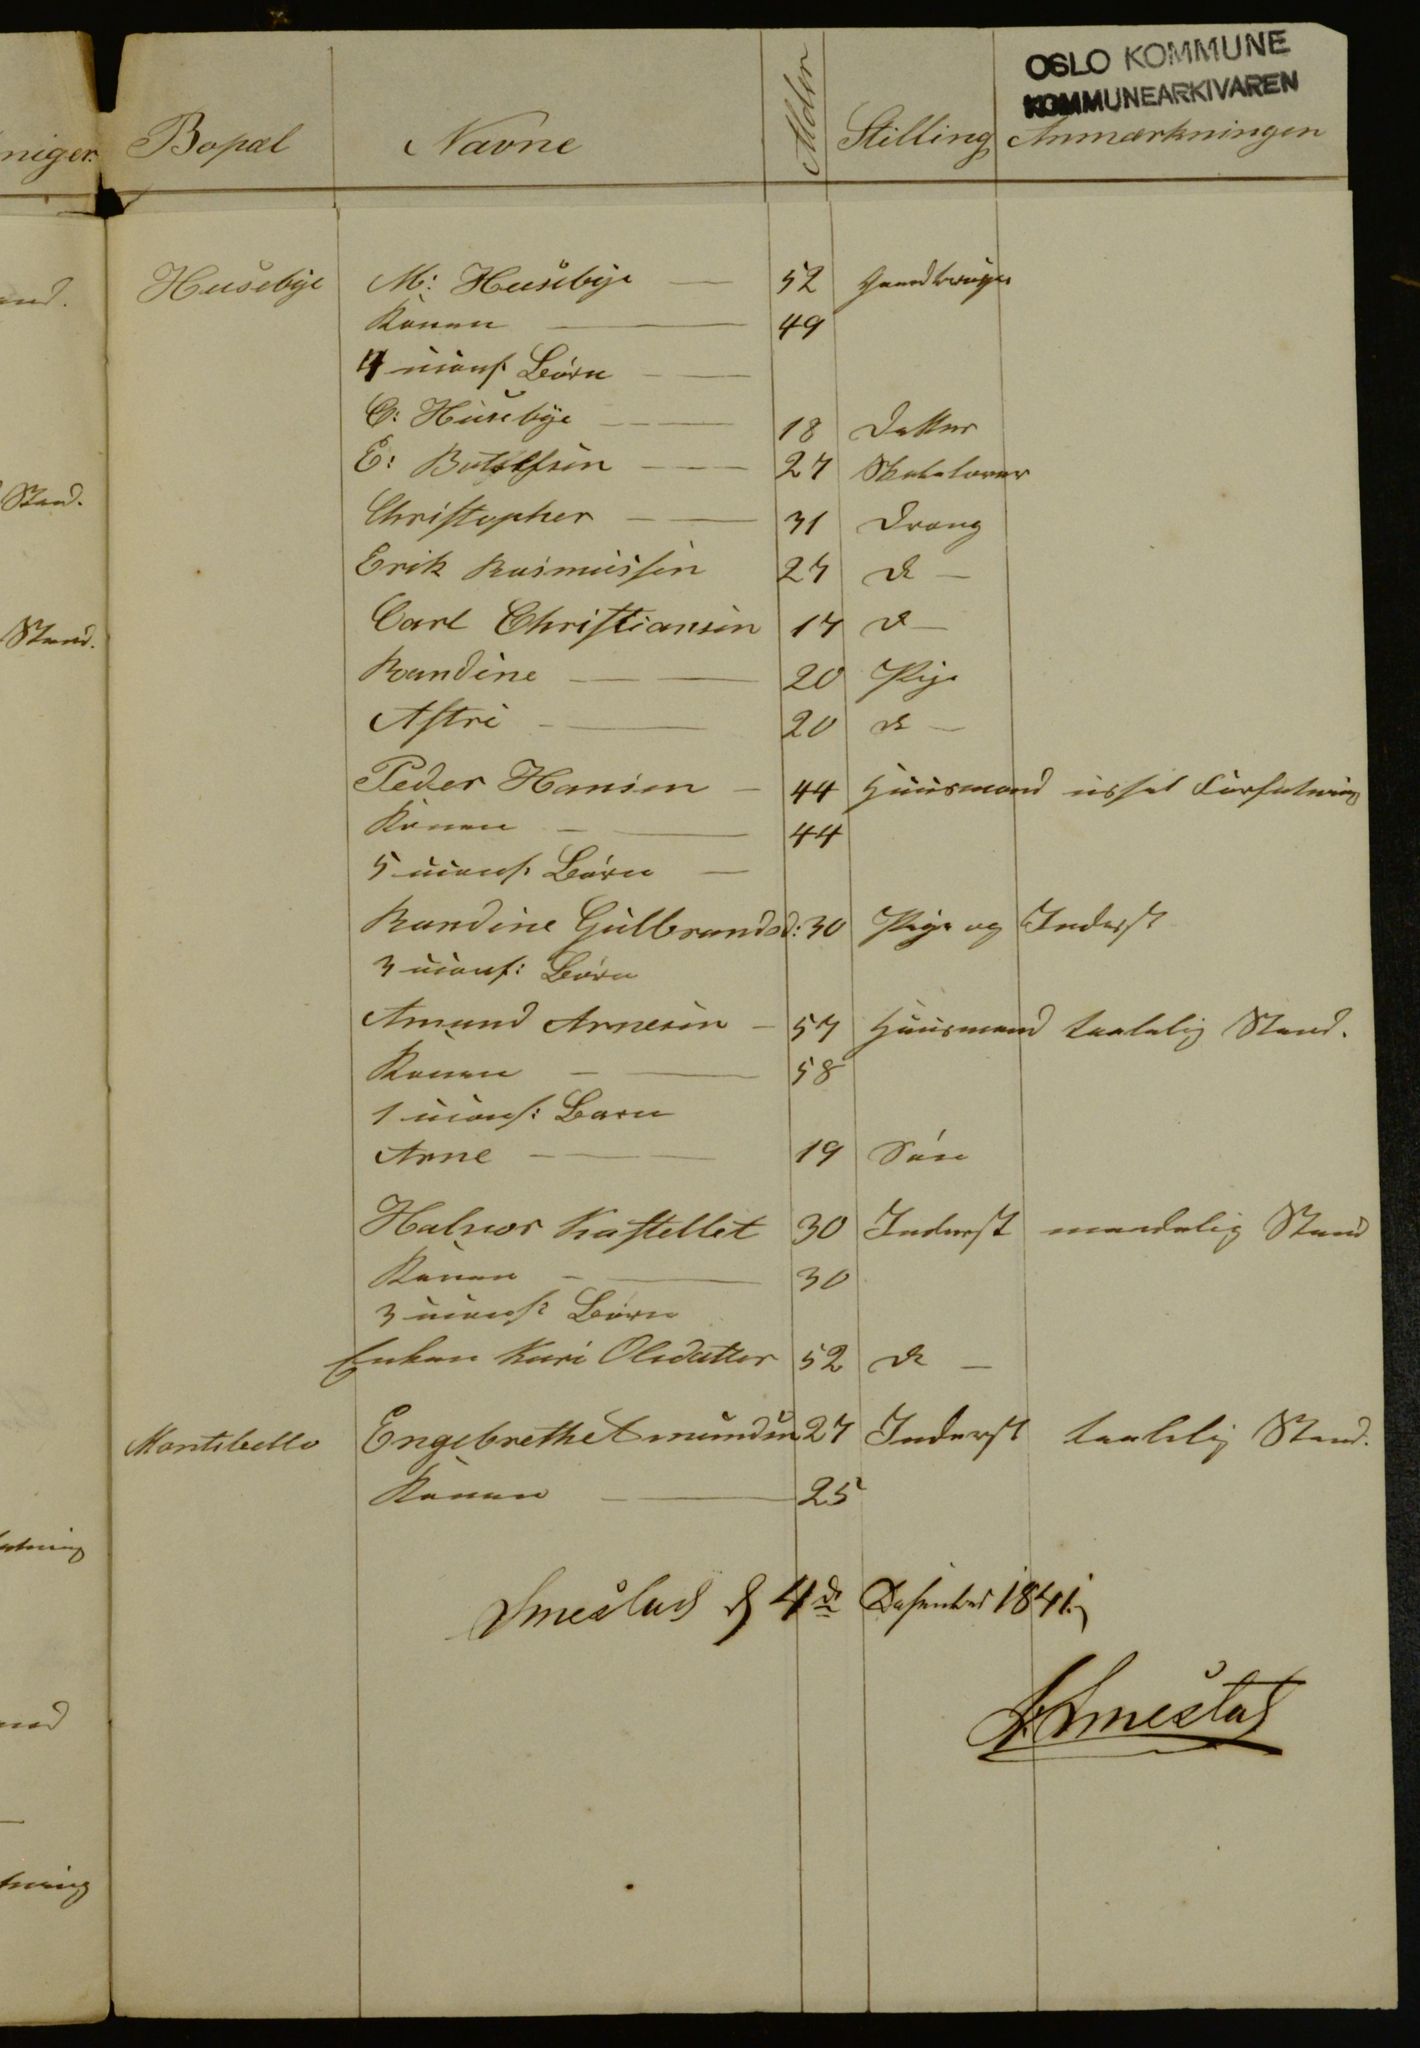 OSLO KOMMUNE
KOMMUNEARKIVAREN
niger. Bopæl Navne Alder Stilling Anmærkninger
Husebye M: Husebye — 52 Gaardbruger
Konen — 49
4 uconf. Børn —
C: Husebye — 18 Datter
E: — 27
Christopher — 31 Dreng
Erik Rasmussen 27 do —
Carl Christiansen 17 do —
Randine — 20 Pige
Astri — 20 do —
Peder Hansen — 44 Huusmand ussel Forfatning
Konen — 44
5 uconf: Børn —
Randine Gulbrandsd: 30 Pige og Inderst
3 uconf: Børn
Amund Arnesen — 57 Huusmand taalelig Stand.
Konen — 58
1 uconf: Barn
Arne — 19 Søn
Halvor Kastellet 30 Inderst maadelig Stand
Konen — 30
3 uconf: Børn
Enken Kari Olsdatter 52 do —
Montebello Engebrethe Amundsen 27 Inderst taalelig Stand.
Konen — 25
Smestad d 4de December 1841.
Smestad
and.
Stand.
Stand.